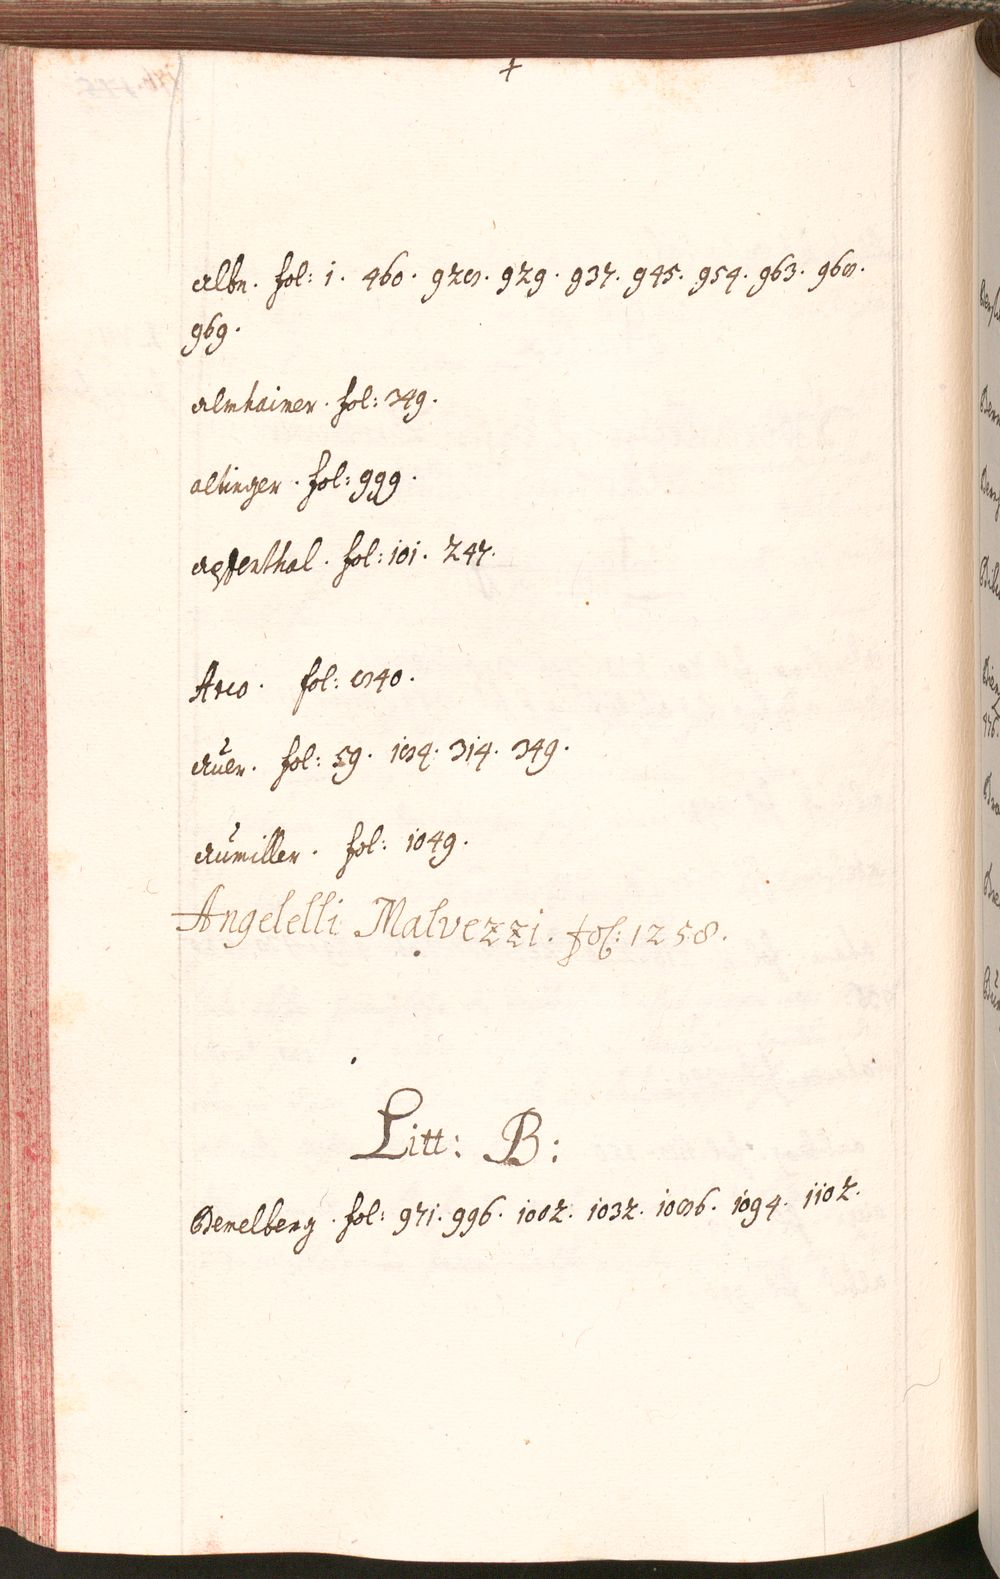 Albn. fol: 1. 460. 928. 929. 937. 945. 954. 963. 968.
969.
Almhaimer. fol: 349.
altinger. fol: 999.
Apfenthal. fol: 101. 247.
Arco. fol: 840.
Auer. fol: 59. 184. 314. 349.
Aumiller. fol: 1049.
Angelelli Malvezzi. fol: 1258.
Litt: B:
fol: 971. 996. 1002. 1032. 1086. 1094. 1102.